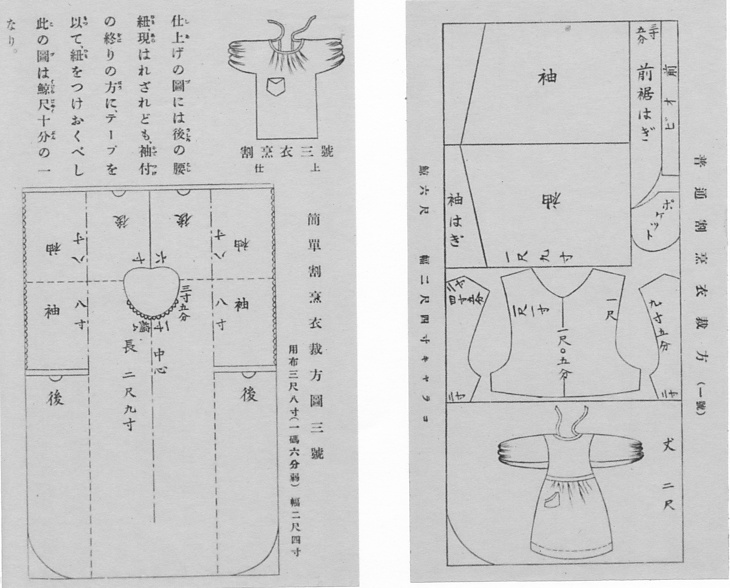 仕上げの圖には後の腰
紐現はれざれども、袖付
の終りの方に、テープを
以て紐をつけおくべし
此の圖は鯨尺十分の一
なり。
割烹衣三號
仕上
簡單割烹衣裁方圖三號
用布三尺八寸(一碼六分弱)幅二尺四寸
後
後
袖
八寸
八寸
袖
袖
八寸
三寸五分
八寸
袖
中心
長二尺九寸
後
後
普通割烹衣裁方(一號)
袖
三寸五分
前裾はぎ
ポケット
袖
袖はぎ
一尺九寸
一尺一寸
一尺
一尺〇五分
九寸五分
丈二尺
總六尺 幅二尺四寸キャラコ